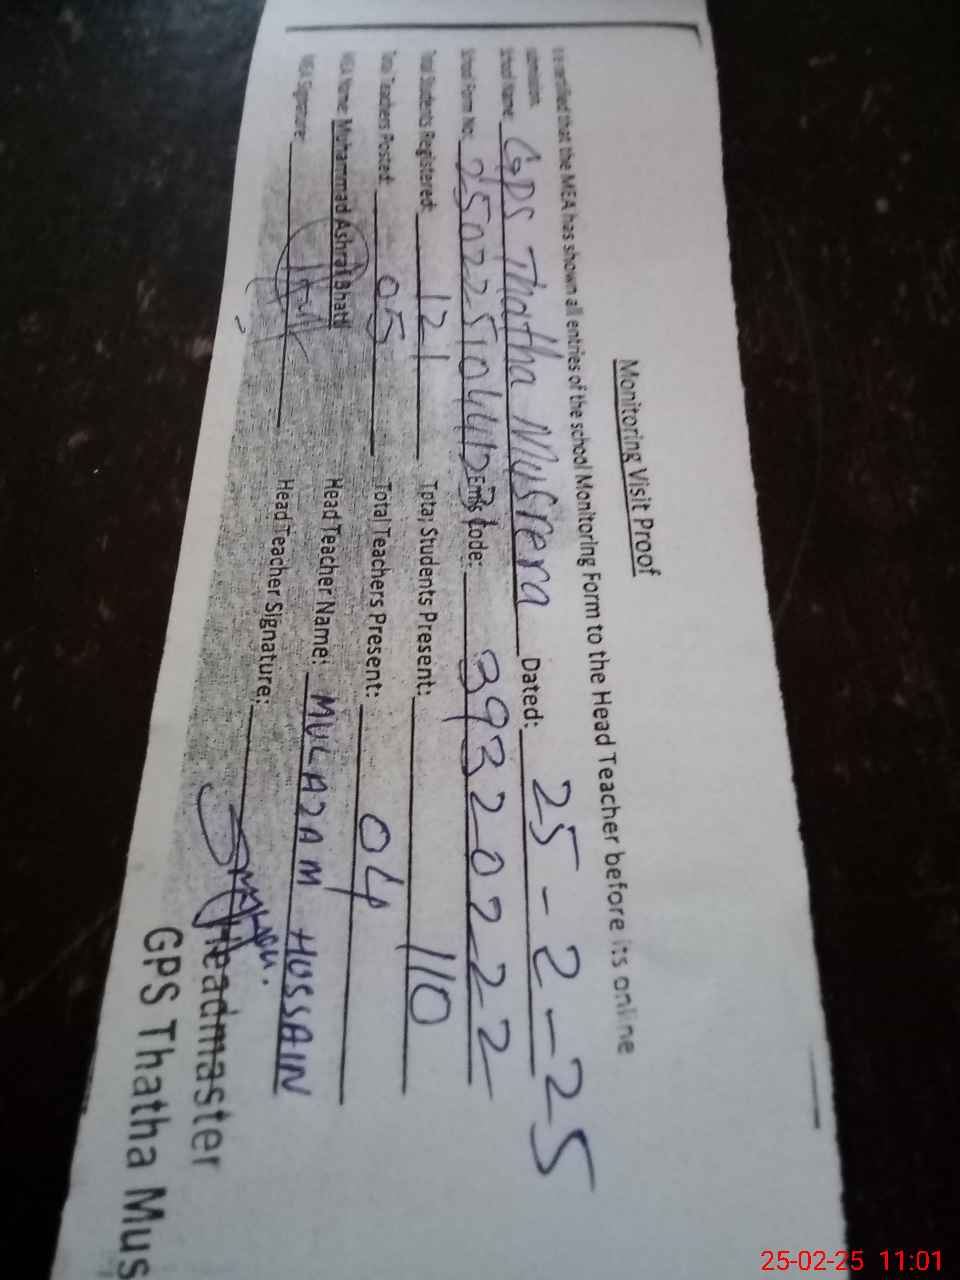 Monitoring Visit Proof
It is certified that the MEA has shown all entries of the school Monitoring Form to the Head Teacher before its online
submission.
School Name: GPS Thatha Musrera Dated: 25-2-25
School Form No: Emis Code: 39320222
Total Students Registered: 121 Tota; Students Present: 110
Total Teachers Posted: 05 Total Teachers Present: 04
MEA Name: Muhammad Ashraf Bhatti Head Teacher Name: MULAZAM HUSSAIN
MEA Signature: Head Teacher Signature:
Headmaster
GPS Thatha Mus
25-02-25 11:01